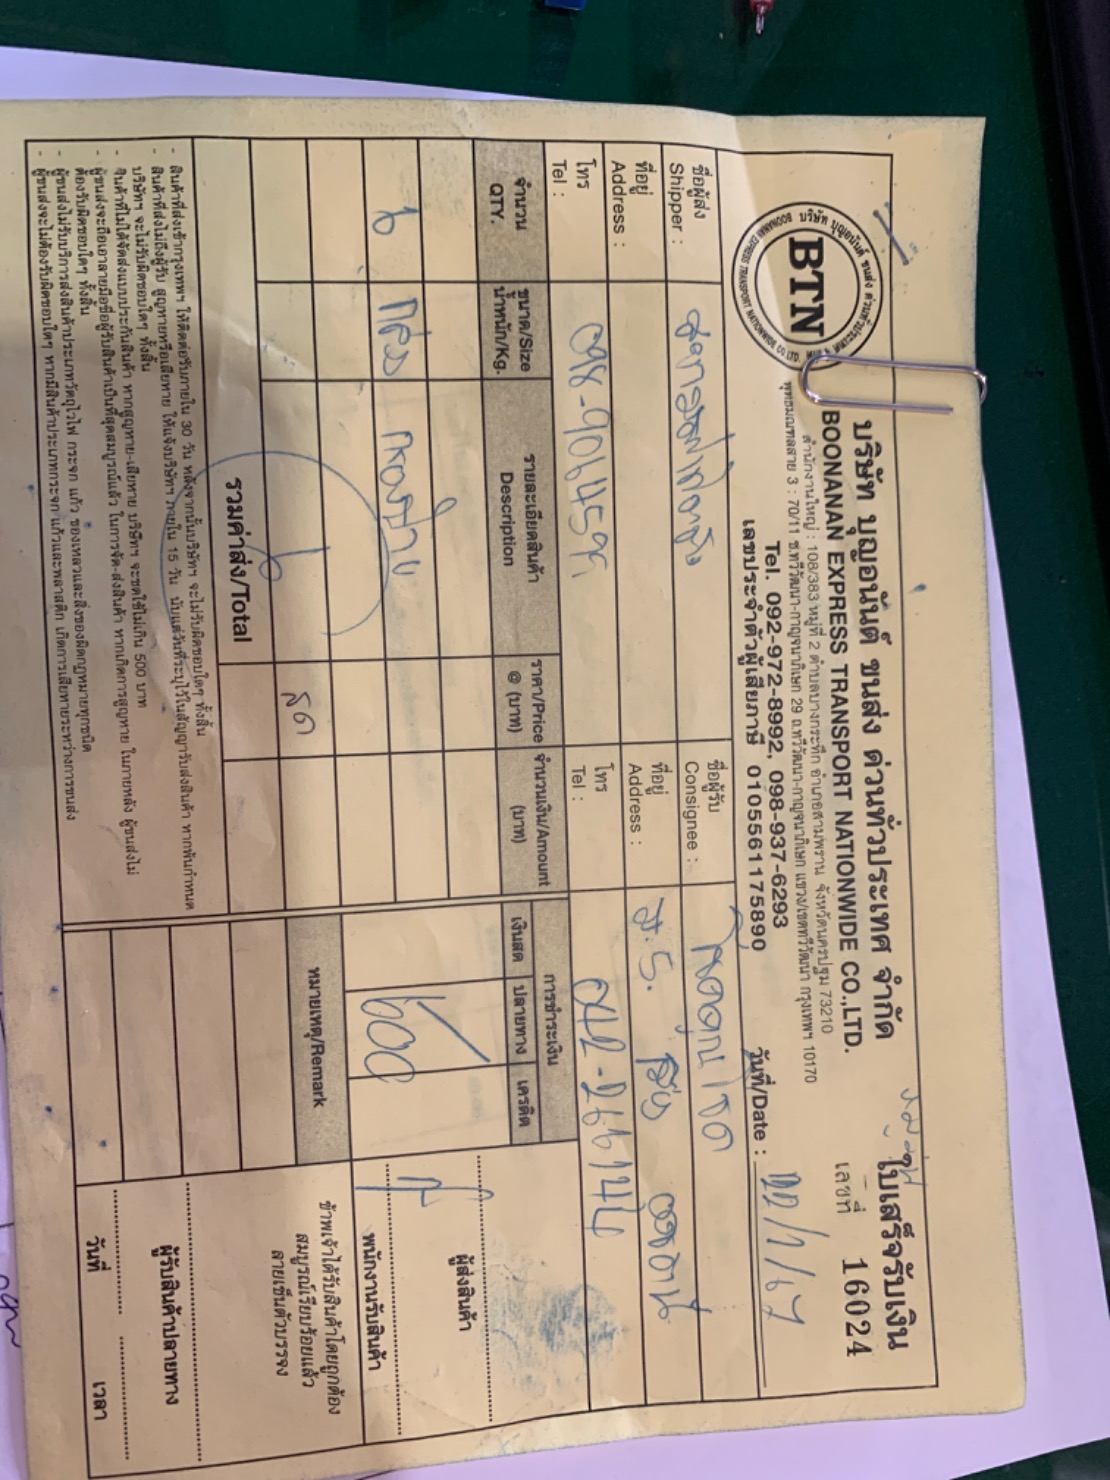 บริษัท บุญอนันต์ ขนส่ง ด่วนทั่วประเทศ จำกัด
BOONANAN EXPRESS TRANSPORT NATIONWIDE CO.,LTD.
BTN
สำนักงานใหญ่ : 108/383 หมู่ที่ 2 ตำบลบางกระทึก อำเภอสามพราน จังหวัดนครปฐม 73210
พุทธมณฑลสาย 3 : 70/11 ซ.ทวีวัฒนา-กาญจนาภิเษก 29 ถ.ทวีวัฒนา-กาญจนาภิเษก แขวง/เขตทวีวัฒนา กรุงเทพฯ 10170
Tel. 092-972-8992, 098-937-6293
เลขประจำตัวผู้เสียภาษี 0105561175890
ใบเสร็จรับเงิน
เลขที่ 16024
วันที่/Date : 22/1/67
ชื่อผู้ส่ง
Shipper :
ที่อยู่
Address :
โทร
Tel : 098-9064595
ชื่อผู้รับ
Consignee :
ที่อยู่
Address :
โทร
Tel : 042-266144
จำนวน
QTY.
ขนาด/Size
น้ำหนัก/Kg.
รายละเอียดสินค้า
Description
ราคา/Price
@ (บาท)
จำนวนเงิน/Amount
(บาท)
การชำระเงิน
เงินสด ปลายทาง เครดิต
6 กล่อง
600
รวมค่าส่ง/Total
6
หมายเหตุ/Remark
ผู้ส่งสินค้า
พนักงานรับสินค้า
ข้าพเจ้าได้รับสินค้าโดยถูกต้อง
สมบูรณ์เรียบร้อยแล้ว
ลายเซ็นตัวบรรจง
ผู้รับสินค้าปลายทาง
วันที่ เวลา
- สินค้าที่ส่งเข้ากรุงเทพฯ ให้ติดต่อรับภายใน 30 วัน หลังจากนั้นบริษัทฯ จะไม่รับผิดชอบใดๆ ทั้งสิ้น
- สินค้าที่ส่งไม่ถึงผู้รับ สูญหายหรือเสียหาย ให้แจ้งบริษัทฯ ภายใน 15 วัน นับแต่วันที่ระบุไว้ในสัญญารับส่งสินค้า หากพ้นกำหนด
บริษัทฯ จะไม่รับผิดชอบใดๆ ทั้งสิ้น
- สินค้าที่ไม่ได้จัดส่งแบบประกันสินค้า หากสูญหาย-เสียหาย บริษัทฯ จะชดใช้ไม่เกิน 500 บาท
- ผู้ขนส่งจะถือเอาลายมือชื่อผู้รับสินค้าเป็นที่สุดสมบูรณ์แล้ว ในการจัด-ส่งสินค้า หากเกิดการสูญหาย ในภายหลัง ผู้ขนส่งไม่
ต้องรับผิดชอบใดๆ ทั้งสิ้น
- ผู้ขนส่งไม่รับบริการส่งสินค้าประเภทวัตถุไวไฟ กระจก แก้ว ของเหลวและสิ่งของผิดกฎหมายทุกชนิด
- ผู้ขนส่งจะไม่ต้องรับผิดชอบใดๆ หากมีสินค้าประเภทกระจก แก้วและพลาสติก เกิดการเสียหายระหว่างการขนส่ง